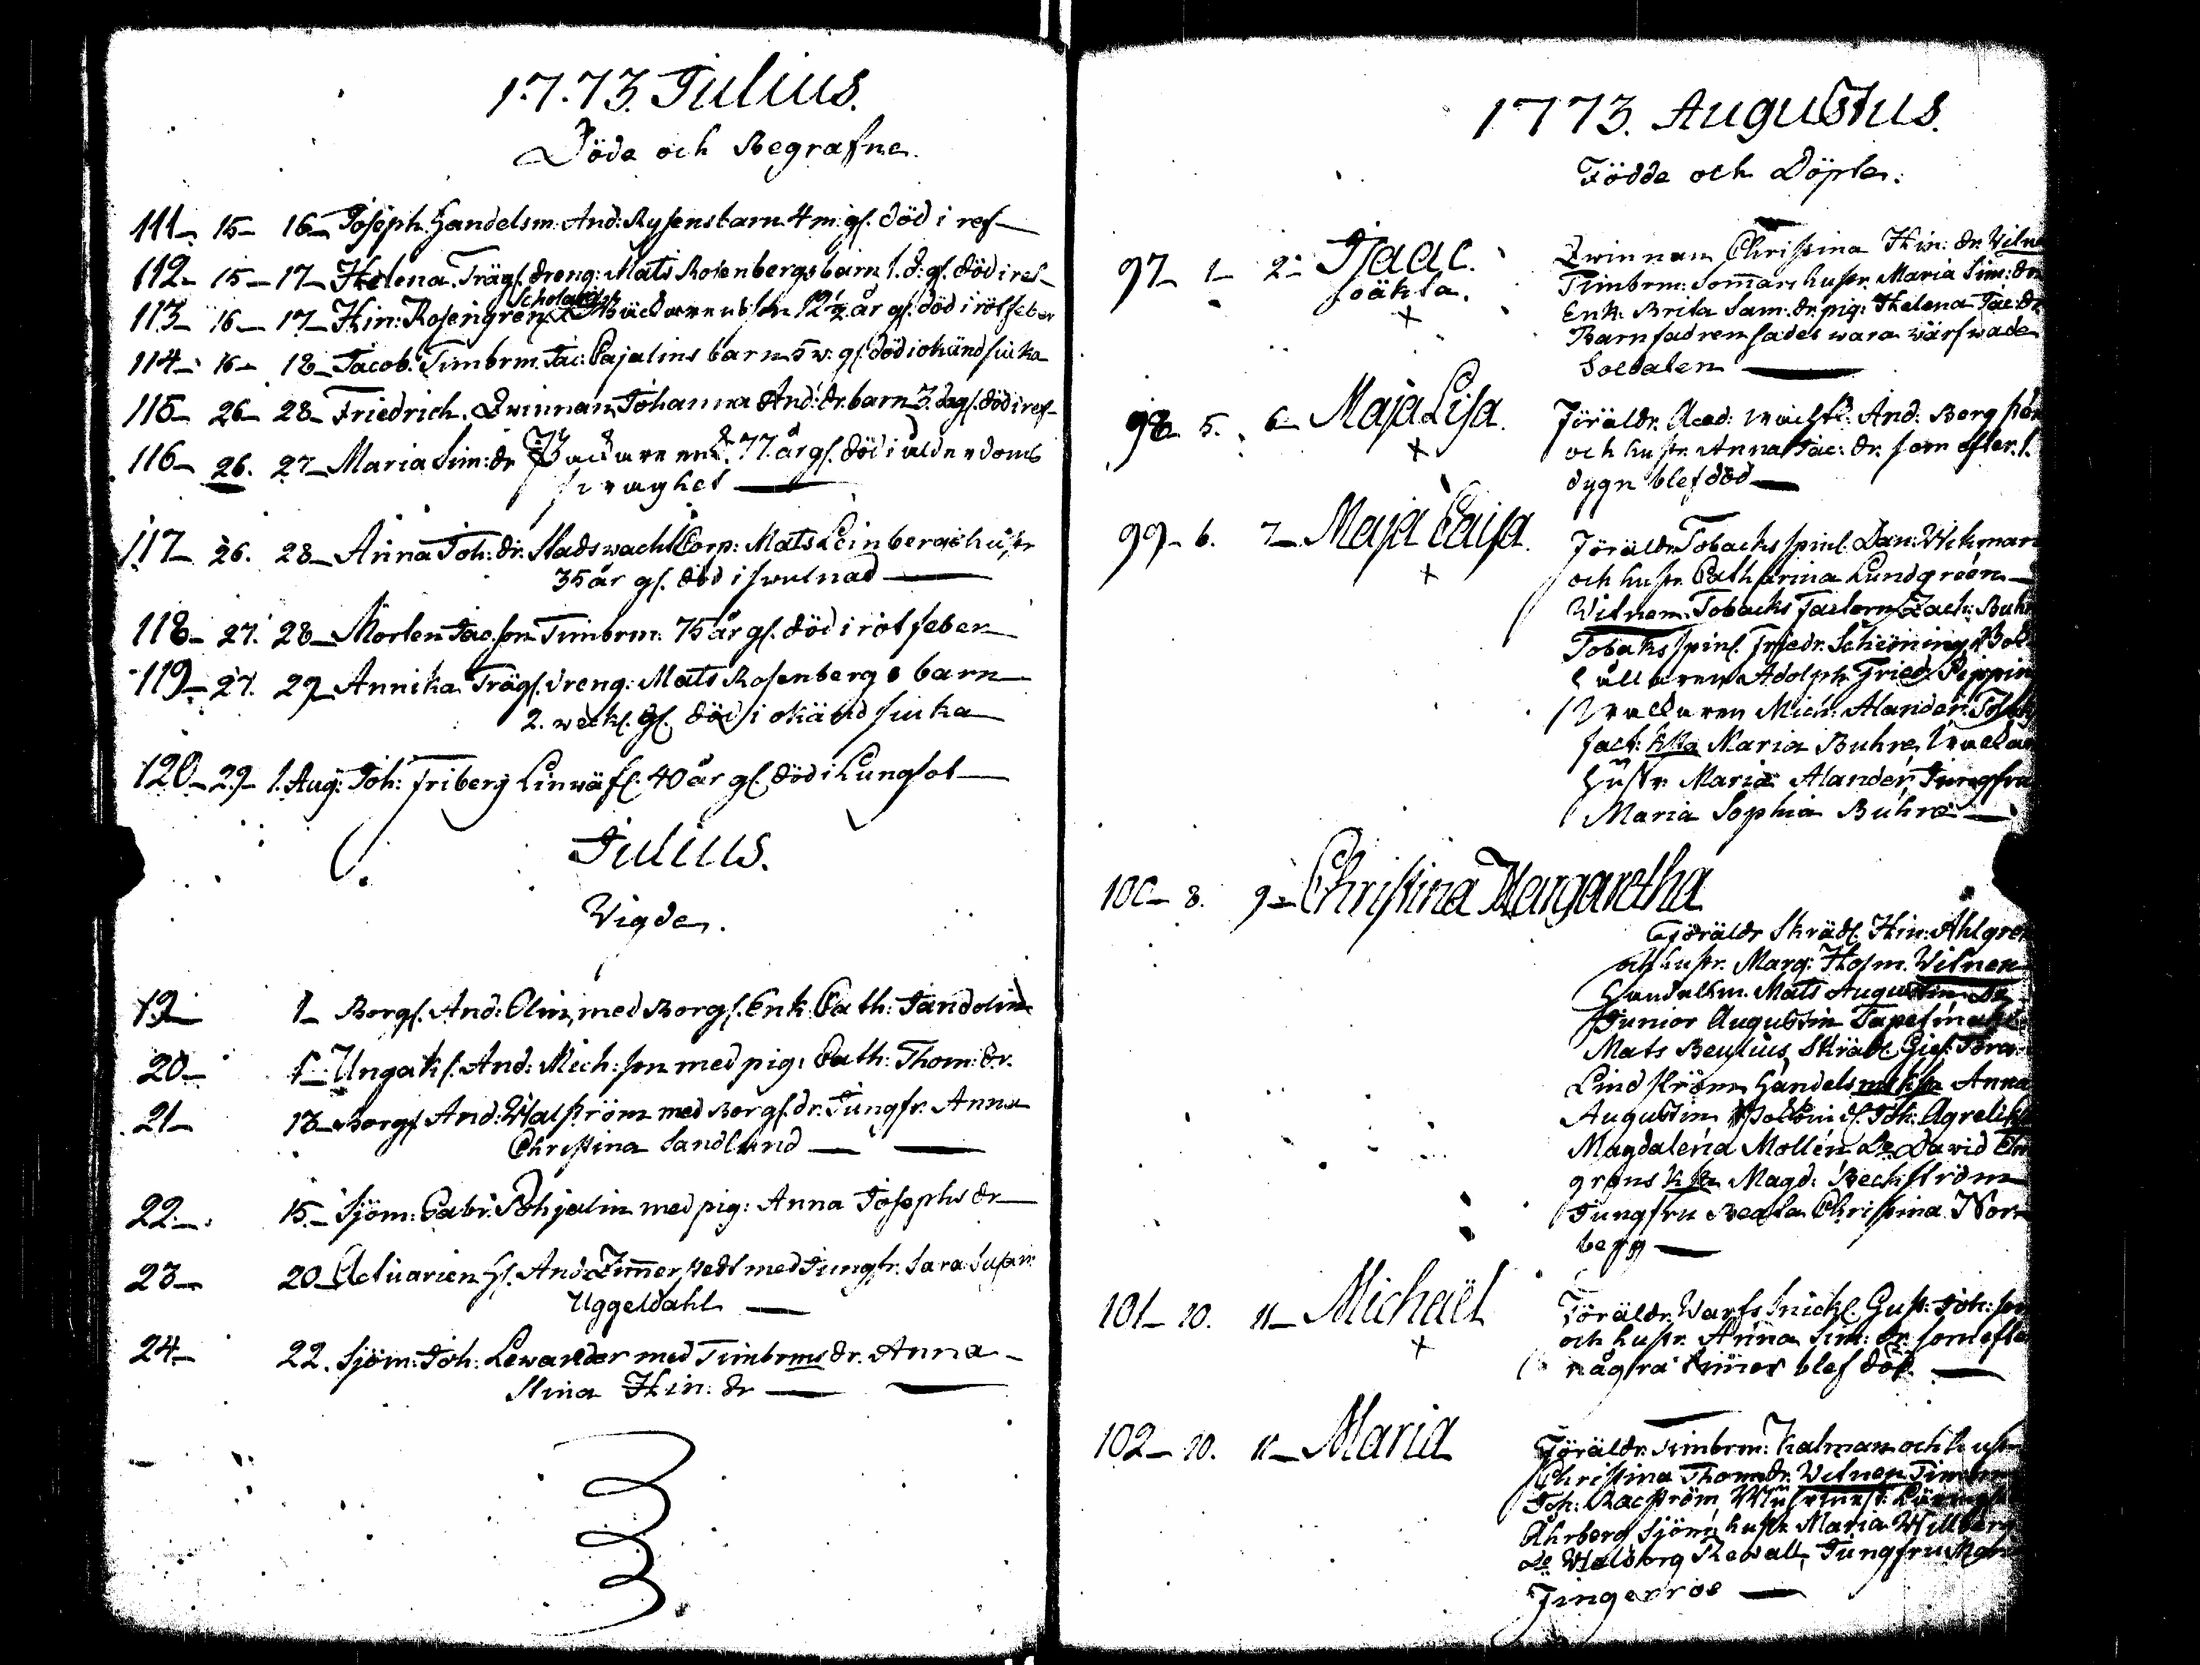 1773. Julius.
Döde och Begrafne.
111 - 15 - 16 - Joseph. Handelsm. And: Rysens barn 4 m: gl. död i ref -
112 - 15 - 17 - Helena. Trägl. dreng: Mats Rosenbergs barn 1. d: gl. död i ref -
113 - 16 - 17 - Hin: Rosengren Scholaris 12½ år gl. död i rötfeber
114 - 16 - 18 - Jacob. Timbrm. Jac: Cajalins barn 5 w: gl. död i okänd siuka
115 - 26 - 28 - Friedrich. Qvinnan Johanna And: dr. barn 3. dag. död i ref -
116 - 26. 27 - Maria Sim: dr 77. år gl. död i ålderdoms
swaghet
117 - 26. 28 - Anna Joh: dr. Stadswacht Corp: Mats Leinbergs hustr
35 år gl. död i swulnad
118 - 27. 28 - Morten Jac: son Timbrm: 75 år gl. död i rötfeber
119 - 27. 29 - Annika Trägl. dreng: Mats Rosenbergs barn
2. weck. gl. död i okänd siuka
120 - 29 - 1. Aug: Joh: Friberg Linwäf. 40 år gl. död i Lungsot
Julius.
Vigde.
19 - 1 - Borgl. And: Olin, med Borgl. Enk. Cath: Tandolin
20 - 1 - Ungakl. And: Mich: son med pig: Cath: Thom: dr.
21 - 13 - Borgl And: Walström med Borgl. dr. Jungfr. Anna
Christina Sandlund
22 - 15 - Sjöm: Gabr: Pohjalin med pig: Anna Josephs dr
23 - 20 - Actuarien H. And: Zimmerstedt med Jungfr. Sara Susan:
Uggeldahl
24 - 22. Sjöm: Joh: Lewander med Timbrms dr. Anna
Stina Hin: dr
1773. Augustus.
Födde och Döpte.
97 - 1 - 2 - Isaac.
oäkta.
Qvinnan Christina Hin: dr. Vitne
Timbrm: Sommars hustr. Maria Sim: dr
Enk. Brita Sam: dr. pig: Helena Jac: dr
Barnfadren sades wara wärfwade
Soldaten
98 5. 6 - Maja Lisa.
Föräldr. Acad: wacht. And: Berg
och hustr. Anna Jac: dr. som efter 1.
dygn blef död
99 - 6. 7 - Maja Caisa.
Föräldr. Tobacks spinl. Dan: Wikman
och hustr. Catharina Lundgreen
Vitnen. Tobacks Factorn Zach: Buhre
Tobaks spinl. Friedr. Schiöning
Adolph Fried. Pippin
Mich: Alander. Tobaks
fact: Maria Buhre,
Hustr. Maria Alander, Jungfru
Maria Sophia Buhre
100 - 8. 9 - Christina Margaretha
Föräldr Skrädl. Hin: Ahlgren
och hustr. Marg: Holm. Vitnen
Handelsm. Mats Augustin
Junior Augustin Tapetmak
Mats Beulius, Skrädl.
Lindström, Handelsm Anna
Augustin Joh: Agrelius
Magdalena Mollén Do David
grens Magd: Beckström
Jungfru Beata Christina Nor
berg
101 - 10. 11 - Michaël
Föräldr. Warfs Snickl. Gust: Joh: son
och hustr. Anna Sim: dr. som efter
några timar blef död.
102 - 10. 11 - Maria
Föräldr. Timbrm: Kalman och hustr
Christina Thom dr. Vitnen Timbrm
Joh: Racström,
Ahrberg Sjöm: hustr Maria Willberg
Do Walborg Jungfru Maria
Fingerroos